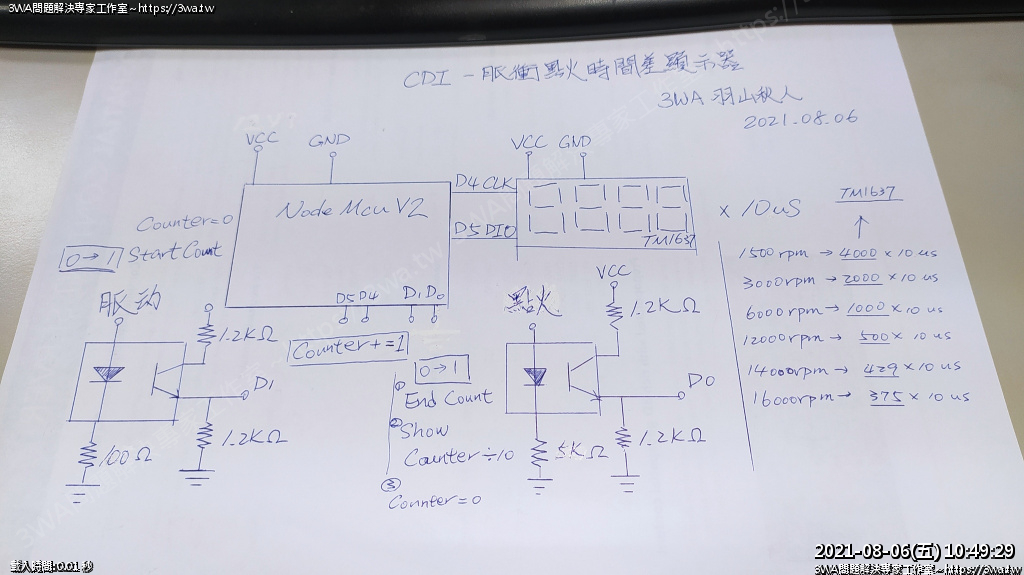 3WA問題解決專家工作室~https://3wa.tw
CDI - 脈衝點火時間差顯示器
3WA 羽山秋人
2021.08.06
VCC GND
VCC GND
NodeMcu V2
D4 CLK
D5 DIO
TM1637
x 10us
TM1637
↑
Counter=0
0→1 Start Count
D5 D4 D1 D0
脈动
1.2KΩ
D1
1.2KΩ
100Ω
Counter+=1
0→1
① End Count
② Show
Counter÷10
③
Counter=0
點火
VCC
1.2KΩ
D0
1.2KΩ
5KΩ
1500rpm → 4000 x 10us
3000rpm → 2000 x 10us
6000rpm → 1000 x 10us
12000rpm → 500 x 10us
14000rpm → 429 x 10us
16000rpm → 375 x 10us
2021-08-06(五) 10:49:29
載入時間:0.01 秒
3WA問題解決專家工作室~https://3wa.tw